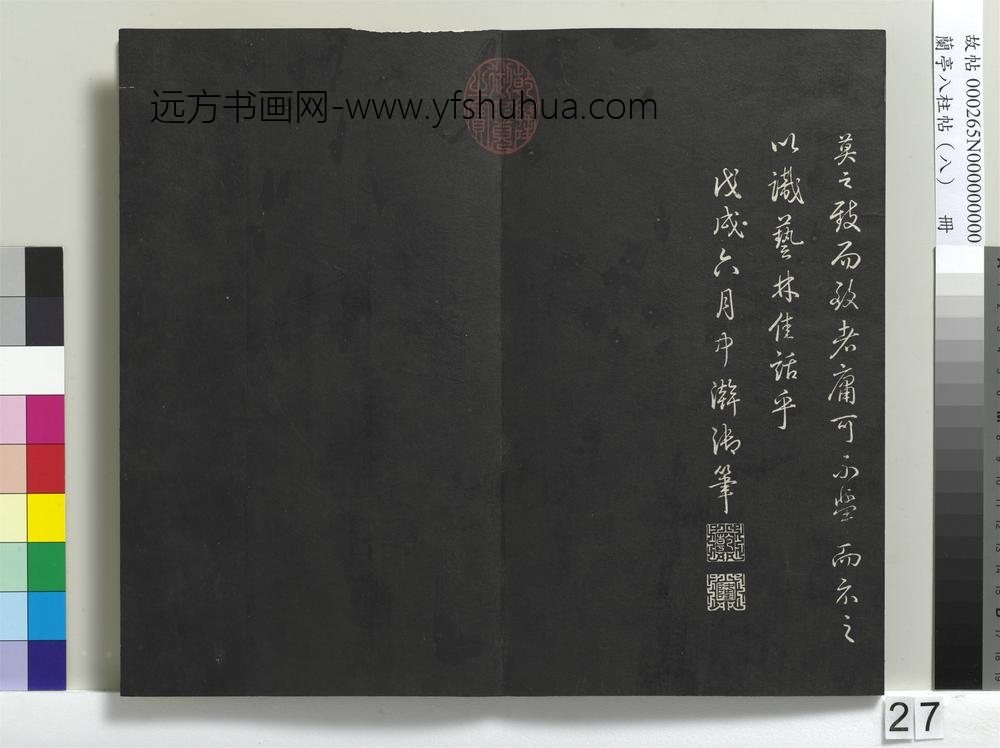 远方书画网-www.yfshuhua.com
莫之致而致者庸可不而示之
以識藝林佳話乎
戊戌六月中澣御筆
乾
隆
故帖 000265N000000000
蘭亭八柱帖(八) 冊
27